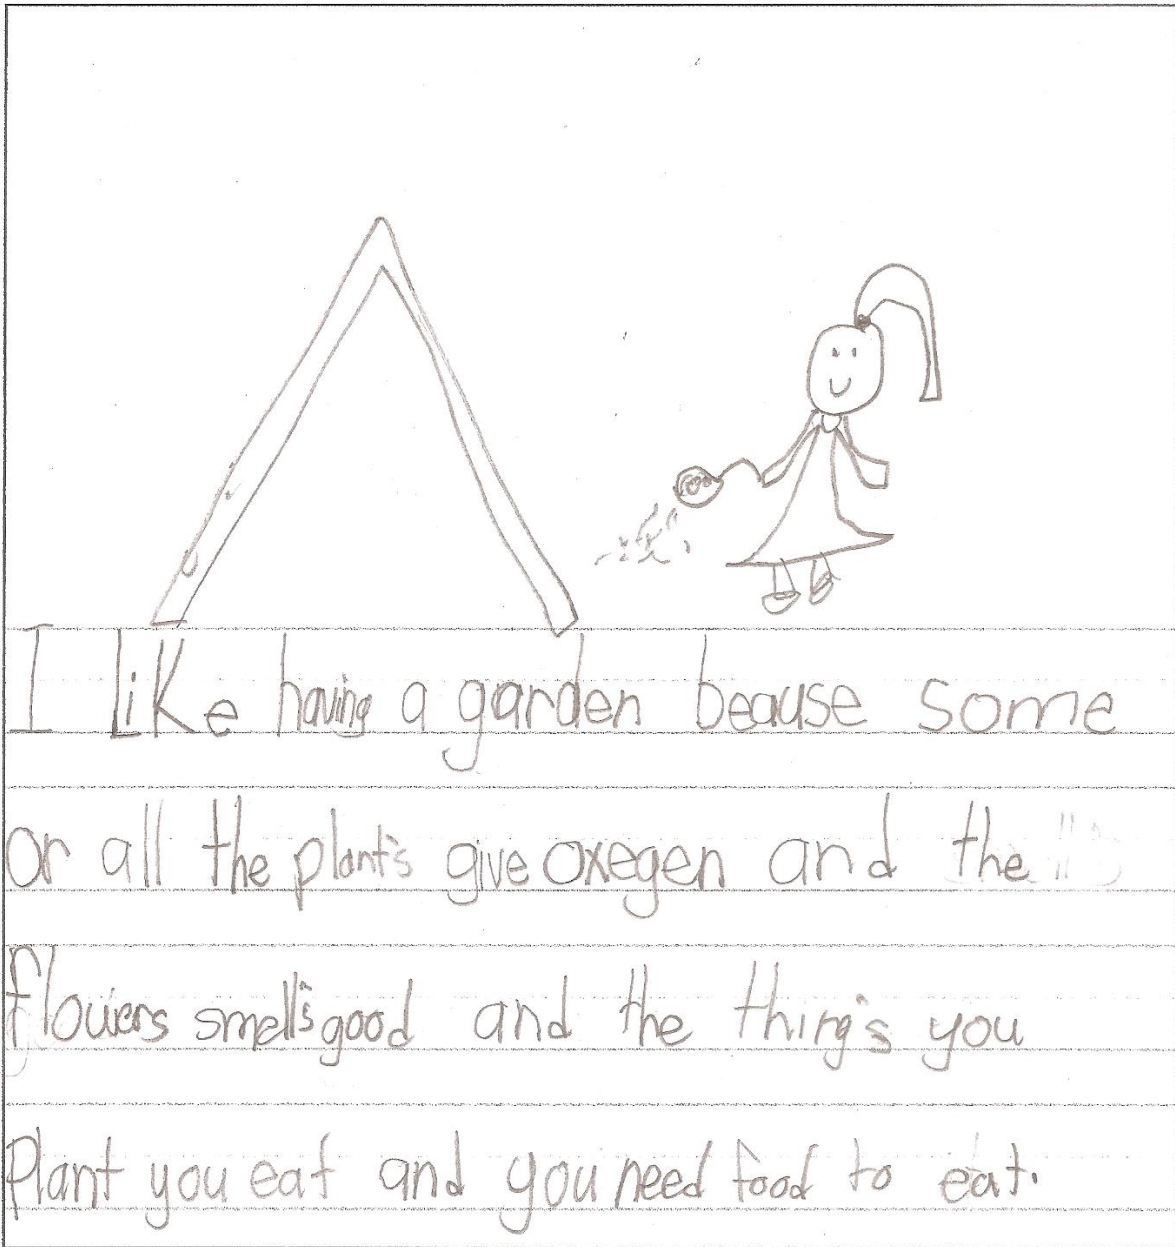 I like having a garden beause some
or all the plant's give oxegen and the
flowers smell's good and the thing's you
Plant you eat and you need food to eat.